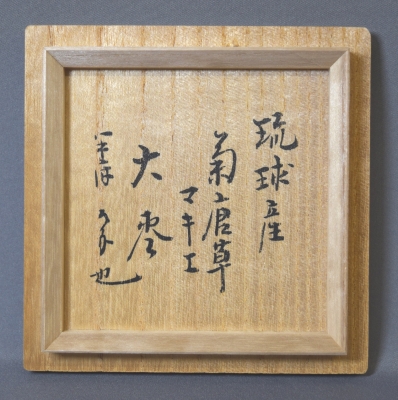 琉球産
菊唐草
マキエ
大棗